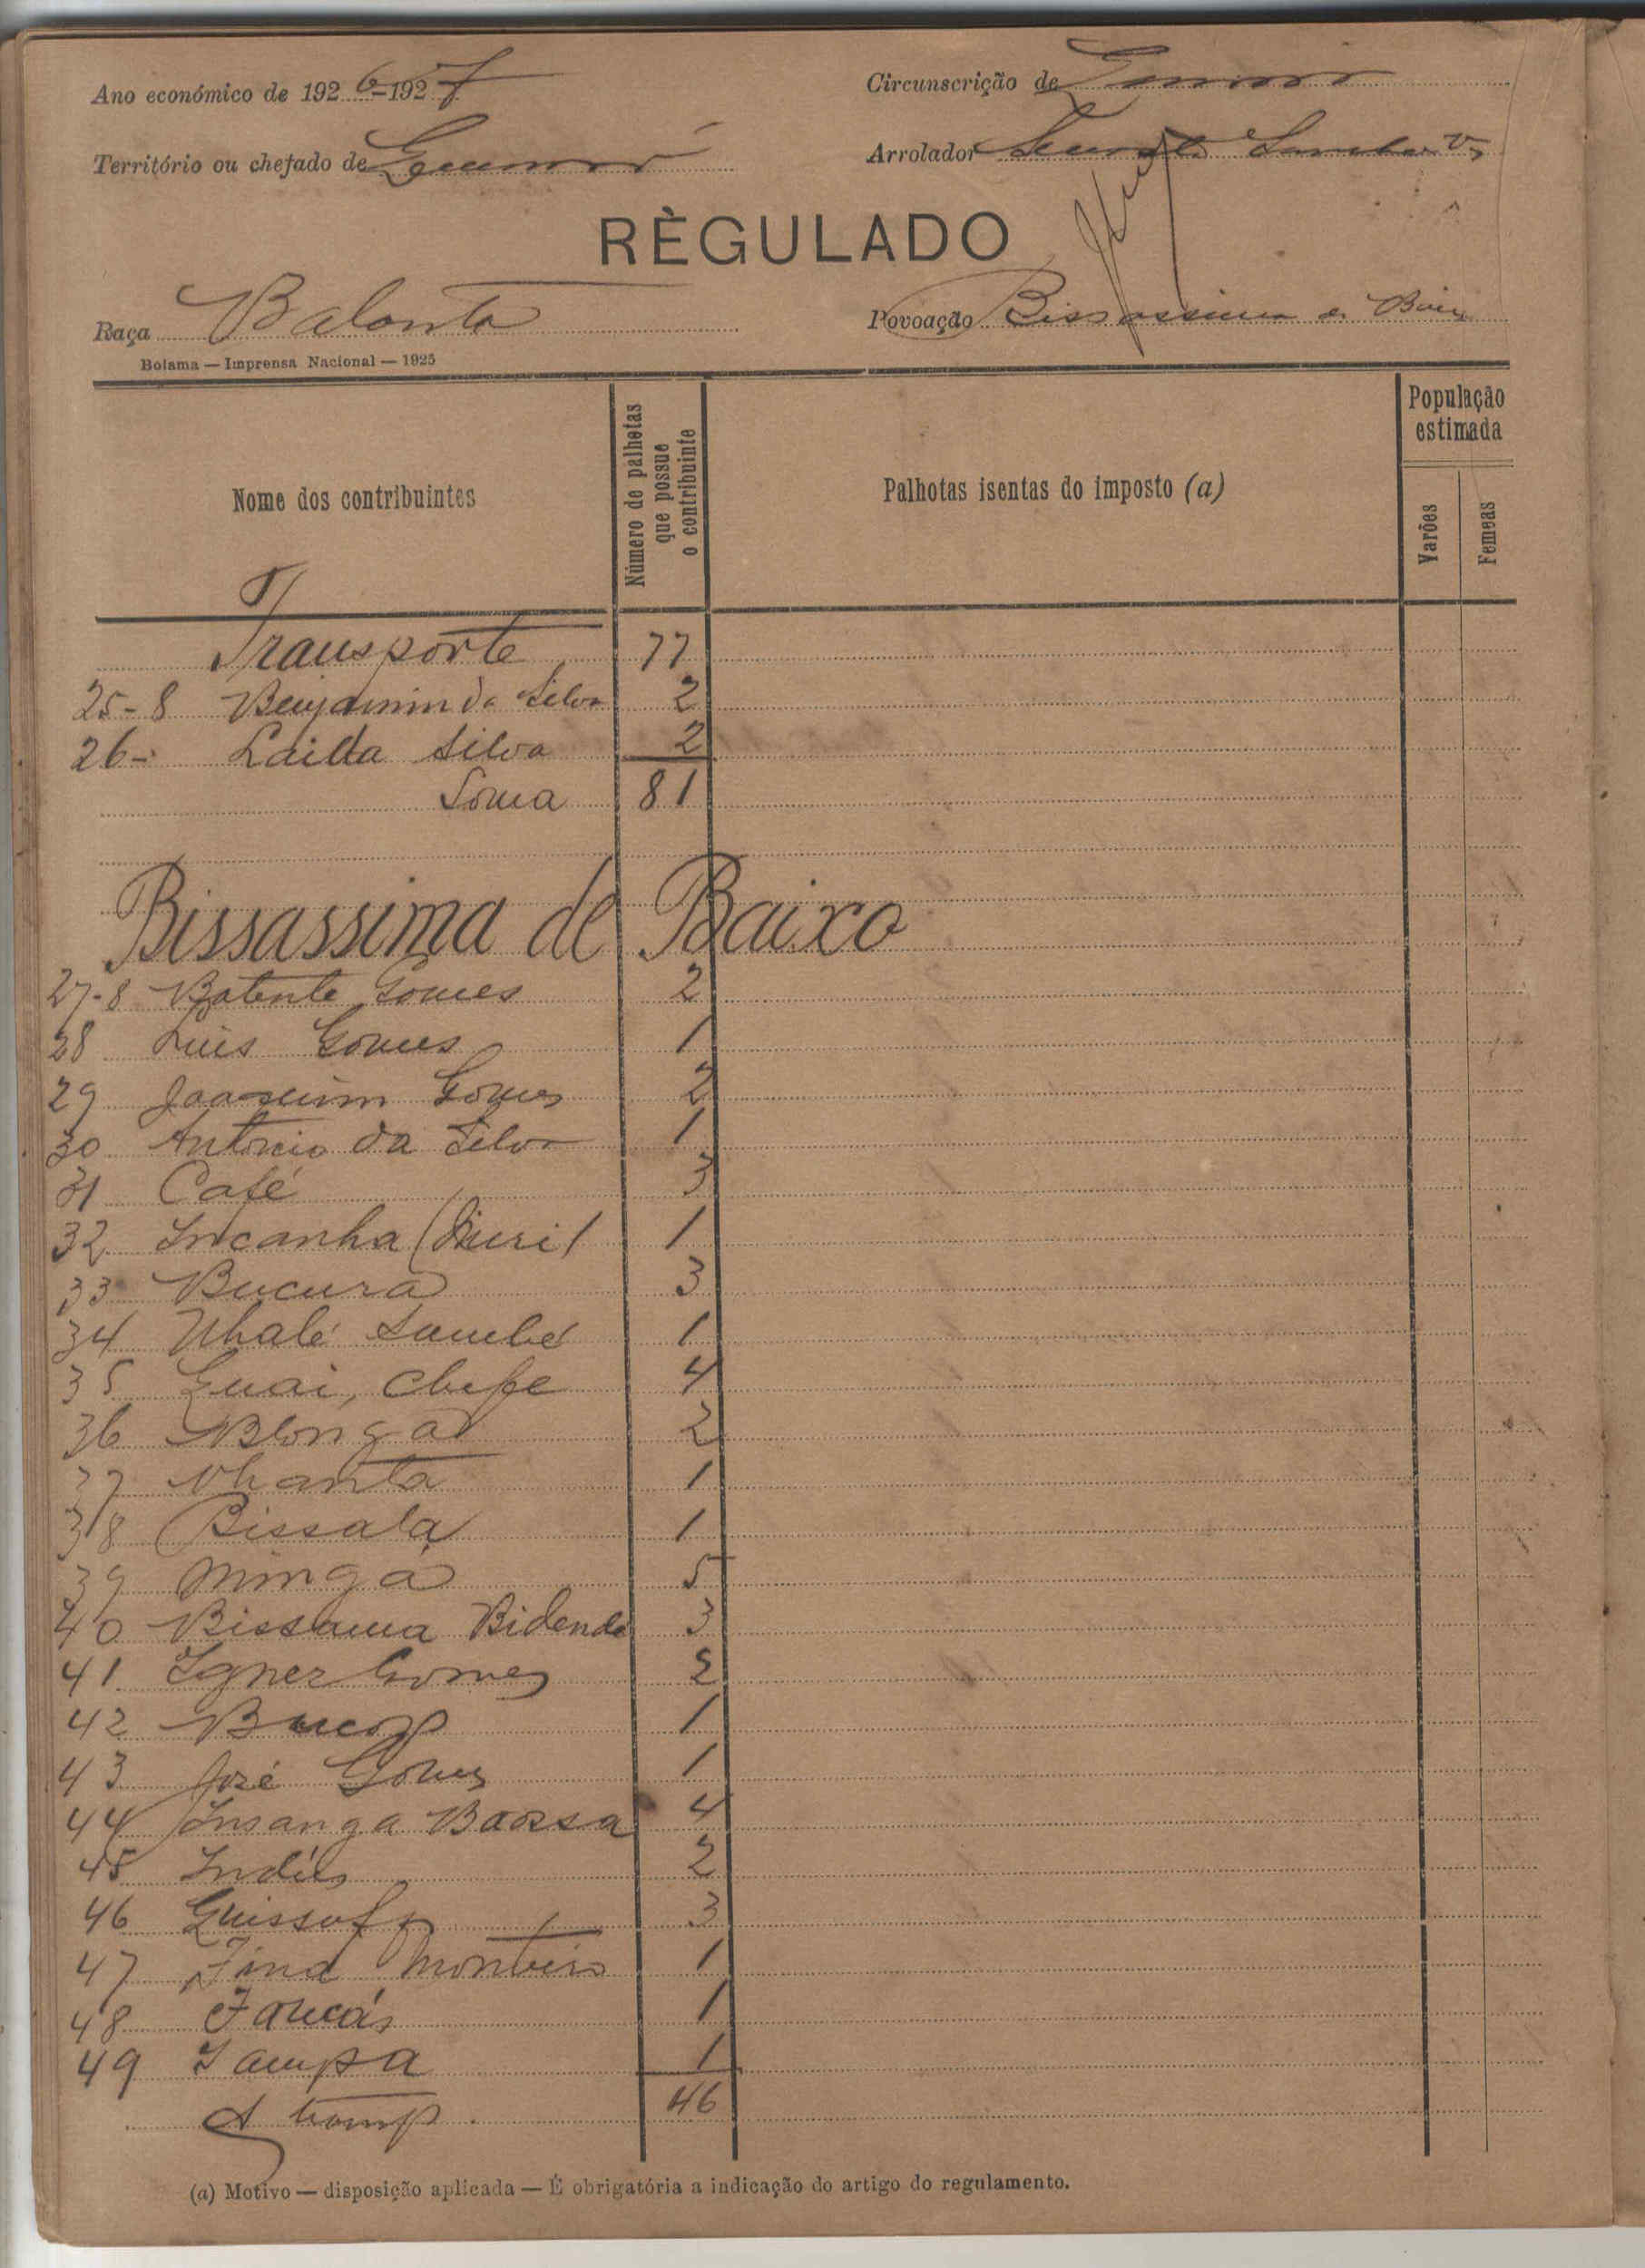 Ano económico de 1926-1927
Circunscrição de
Território ou chefado de
Arrolador
RÈGULADO
Raça Balanta
Povoação Bissassima
Bolama — Imprensa Nacional — 1925
Nome dos contribuintes
Número de palhotas que possue o contribuinte
Palhotas isentas do imposto (a)
População estimada
Varões
Femeas
Transporte 77
25-8 Benjamim da Silva 2
26- Lailla Silva 2
Soma 81
Bissassima de Baixo
27-8 Batente Gomes 2
28 Luis Gomes 1
29 Joaquim Gomes 2
30 Antonio da Silva 1
31 Café 3
32 Incanha 1
33 Bucura 3
34 Nhalé Sambé 1
35 Guai, Chefe 4
36 Blonga 2
37 Nhanta 1
38 Bissala 1
39 Minga 5
40 Bissama Bidende 3
41 Gomes 2
42 1
43 José Gomes 1
44 Insanga Baossa 4
45 2
46 3
47 Monteiro 1
48 1
49 1
A transp. 46
(a) Motivo — disposição aplicada — É obrigatória a indicação do artigo do regulamento.